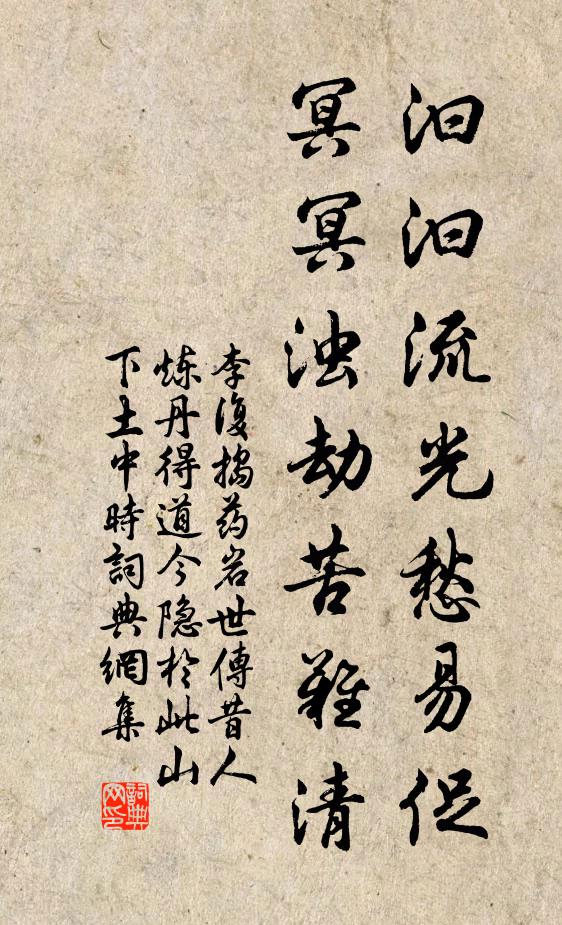 汩汩流光愁易促
冥冥浊劫苦難清
李復搗药岩世傳昔人
炼丹得道今隐於此山
下土中時詞典網集
詞典网印